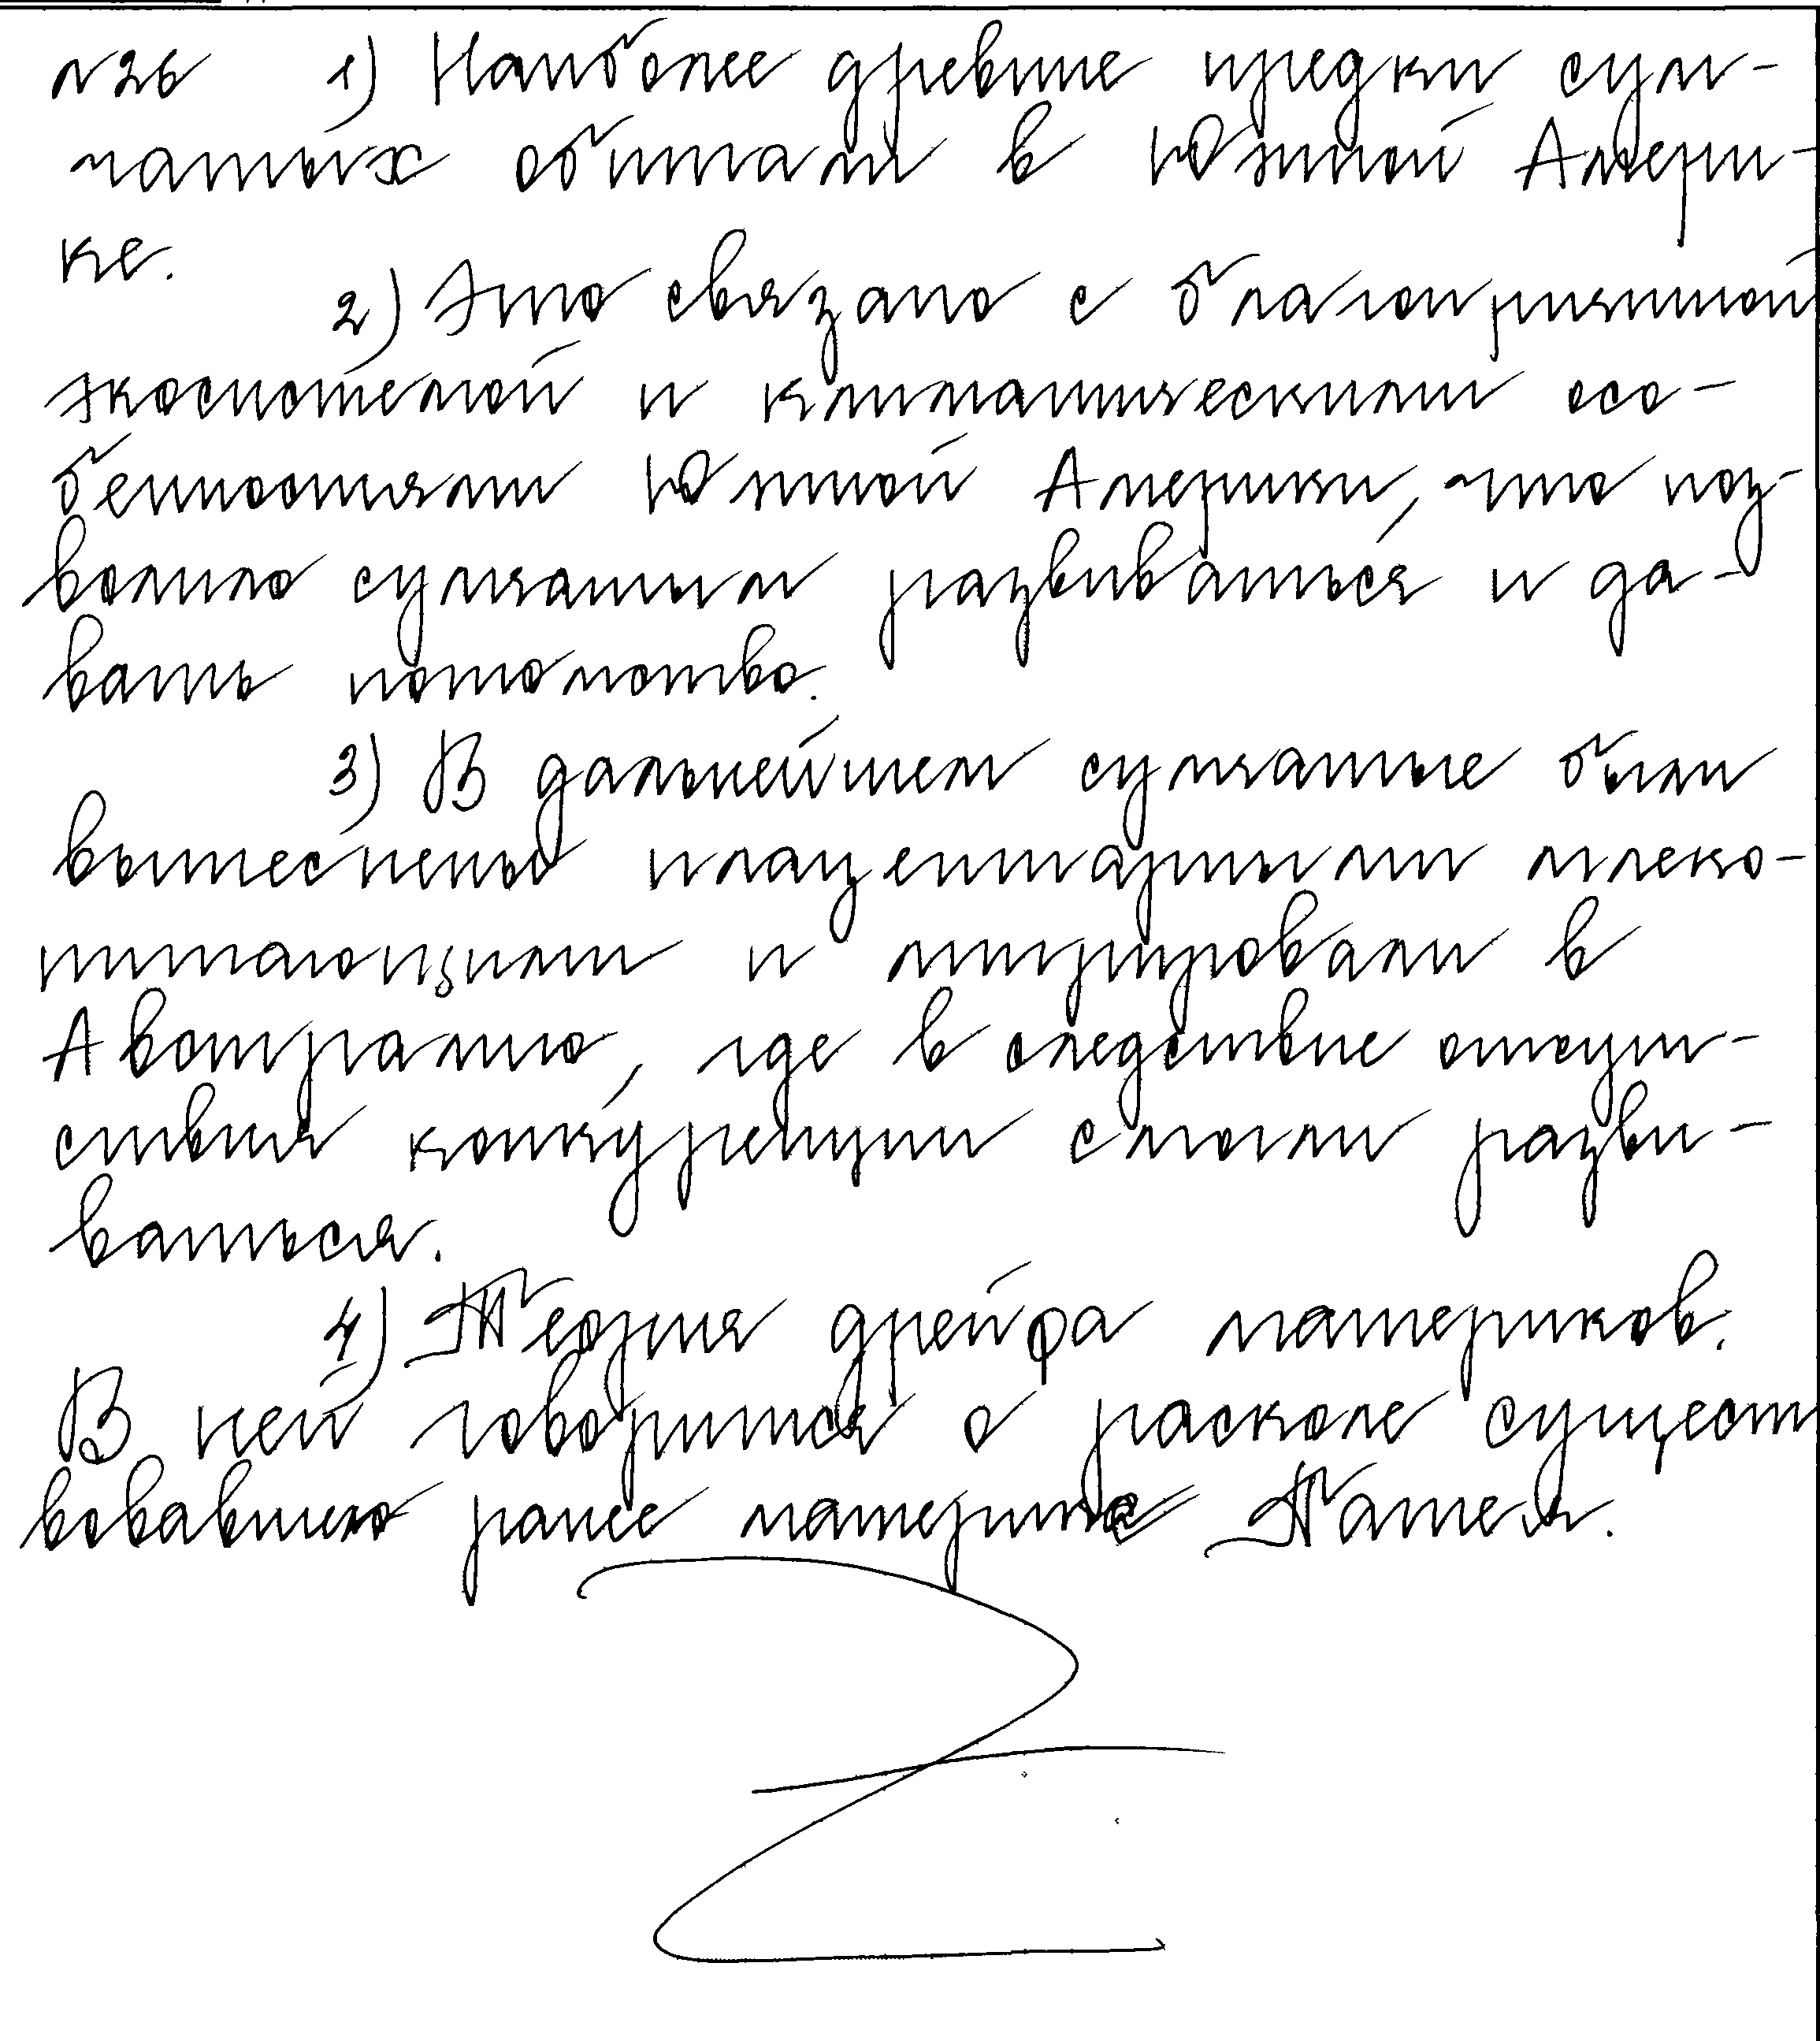 №26 1) Наиболее древние предки сум-
чатых обитали в Южной Амери-
ке.
2) Это связано с благоприятной
экосистемой и климатическими осо-
бенностями Южной Америки, что поз-
волило сумчатым развиваться и да-
вать потомство.
3) В дальнейшем сумчатые были
вытеснены плацентарными млеко-
питающими и мигрировали в
Австралию, где в следствие отсут-
ствия конкуренции смогли разви-
ваться.
4) Теория дрейфа материков.
В ней говорится о расколе сущест
вовавшего ранее материка Пангея.